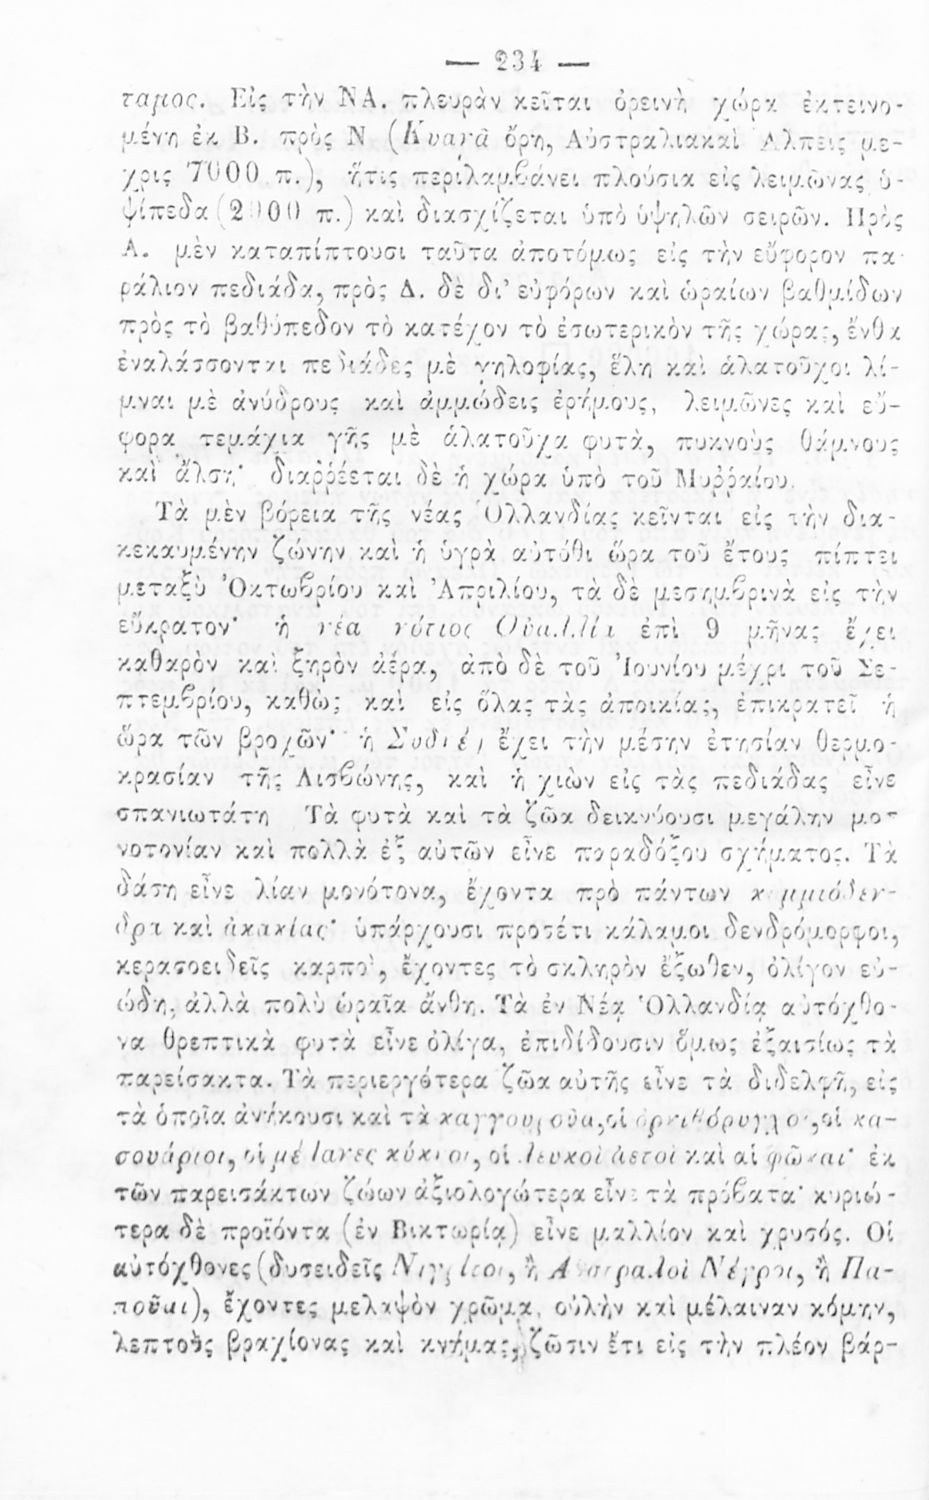 — 234 —
ταμος. Εἰς τὴν ΝΑ. πλευρὰν κεῖται ὀρεινὴ χώρα ἐκτεινο-
μένη ἐκ Β. πρὸς Ν (Κυανᾶ ὄρη, Αὐστραλιακαὶ Ἄλπεις με-
χρις 7000 π.), ἥτις περιλαμβάνει πλούσια εἰς λειμῶνας ὑ-
ψίπεδα (2000 π.) καὶ διασχίζεται ὑπὸ ὑψηλῶν σειρῶν. Πρὸς
Α. μὲν καταπίπτουσι ταῦτα ἀποτόμως εἰς τὴν εὔφορον πα-
ράλιον πεδιάδα, πρὸς Δ. δὲ δι’ εὐφόρων καὶ ὡραίων βαθμίδων
πρὸς τὸ βαθύπεδον τὸ κατέχον τὸ ἐσωτερικὸν τῆς χώρας, ἔνθα
ἐναλάσσονται πεδιάδες μὲ γηλοφίας, ἕλη καὶ ἁλατοῦχοι λί-
μναι μὲ ἀνύδρους καὶ ἀμμώδεις ἐρήμους, λειμῶνες καὶ εὔ-
φορα τεμάχια γῆς μὲ ἁλατοῦχα φυτὰ, πυκνοὺς θάμνους
καὶ ἄλση· διαῤῥέεται δὲ ἡ χώρα ὑπὸ τοῦ Μυῤῥαίου.
Τὰ μὲν βόρεια τῆς νέας Ὁλλανδίας κεῖνται εἰς τὴν δια-
κεκαυμένην ζώνην καὶ ἡ ὑγρὰ αὐτόθι ὥρα τοῦ ἔτους πίπτει
μεταξὺ Ὀκτωβρίου καὶ Ἀπριλίου, τὰ δὲ μεσημβρινὰ εἰς τὴν
εὔκρατον· ἡ νέα νότιος Οὐαλλία ἐπὶ 9 μῆνας ἔχει
καθαρὸν καὶ ξηρὸν ἀέρα, ἀπὸ δὲ τοῦ Ἰουνίου μέχρι τοῦ Σε-
πτεμβρίου, καθὼς καὶ εἰς ὅλας τὰς ἀποικίας, ἐπικρατεῖ ἡ
ὥρα τῶν βροχῶν· ἡ Συδνέη ἔχει τὴν μέσην ἐτησίαν θερμο-
κρασίαν τῆς Λισβώνης, καὶ ἡ χιὼν εἰς τὰς πεδιάδας εἶνε
σπανιωτάτη Τὰ φυτὰ καὶ τὰ ζῶα δεικνύουσι μεγάλην μο-
νοτονίαν καὶ πολλὰ ἐξ αὐτῶν εἶνε παραδόξου σχήματος. Τὰ
δάση εἶνε λίαν μονότονα, ἔχοντα πρὸ πάντων κομμιόδεν-
δρα καὶ ἀκακίας· ὑπάρχουσι προσέτι κάλαμοι δενδρόμορφοι,
κερασοειδεῖς καρποὶ, ἔχοντες τὸ σκληρὸν ἔξωθεν, ὀλίγον εὐ-
ώδη, ἀλλὰ πολὺ ὡραῖα ἄνθη. Τὰ ἐν Νέᾳ Ὁλλανδίᾳ αὐτόχθο-
να θρεπτικὰ φυτὰ εἶνε ὀλίγα, ἐπιδίδουσιν ὅμως ἐξαισίως τὰ
παρείσακτα. Τὰ περιεργότερα ζῶα αὐτῆς εἶνε τὰ διδελφῆ, εἰς
τὰ ὁποῖα ἀνήκουσι καὶ τὰ καγγουροῦα, οἱ ὀρνιθόρυγχοι, οἱ κα-
σουάριοι, οἱ μέλανες κύκνοι, οἱ λευκοὶ ἀετοὶ καὶ αἱ φῶκαι· ἐκ
τῶν παρεισάκτων ζώων ἀξιολογώτερα εἶνε τὰ πρόβατα· κυριώ-
τερα δὲ προϊόντα (ἐν Βικτωρίᾳ) εἶνε μαλλίον καὶ χρυσός. Οἱ
αὐτόχθονες (δυσειδεῖς Νιγρῖτοι, ἢ Αὐστραλοὶ Νέγροι, ἢ Πα-
ποῦαι), ἔχοντες μελαψὸν χρῶμα, οὐλὴν καὶ μέλαιναν κόμην,
λεπτοὺς βραχίονας καὶ κνήμας, ζῶσιν ἔτι εἰς τὴν πλέον βάρ-